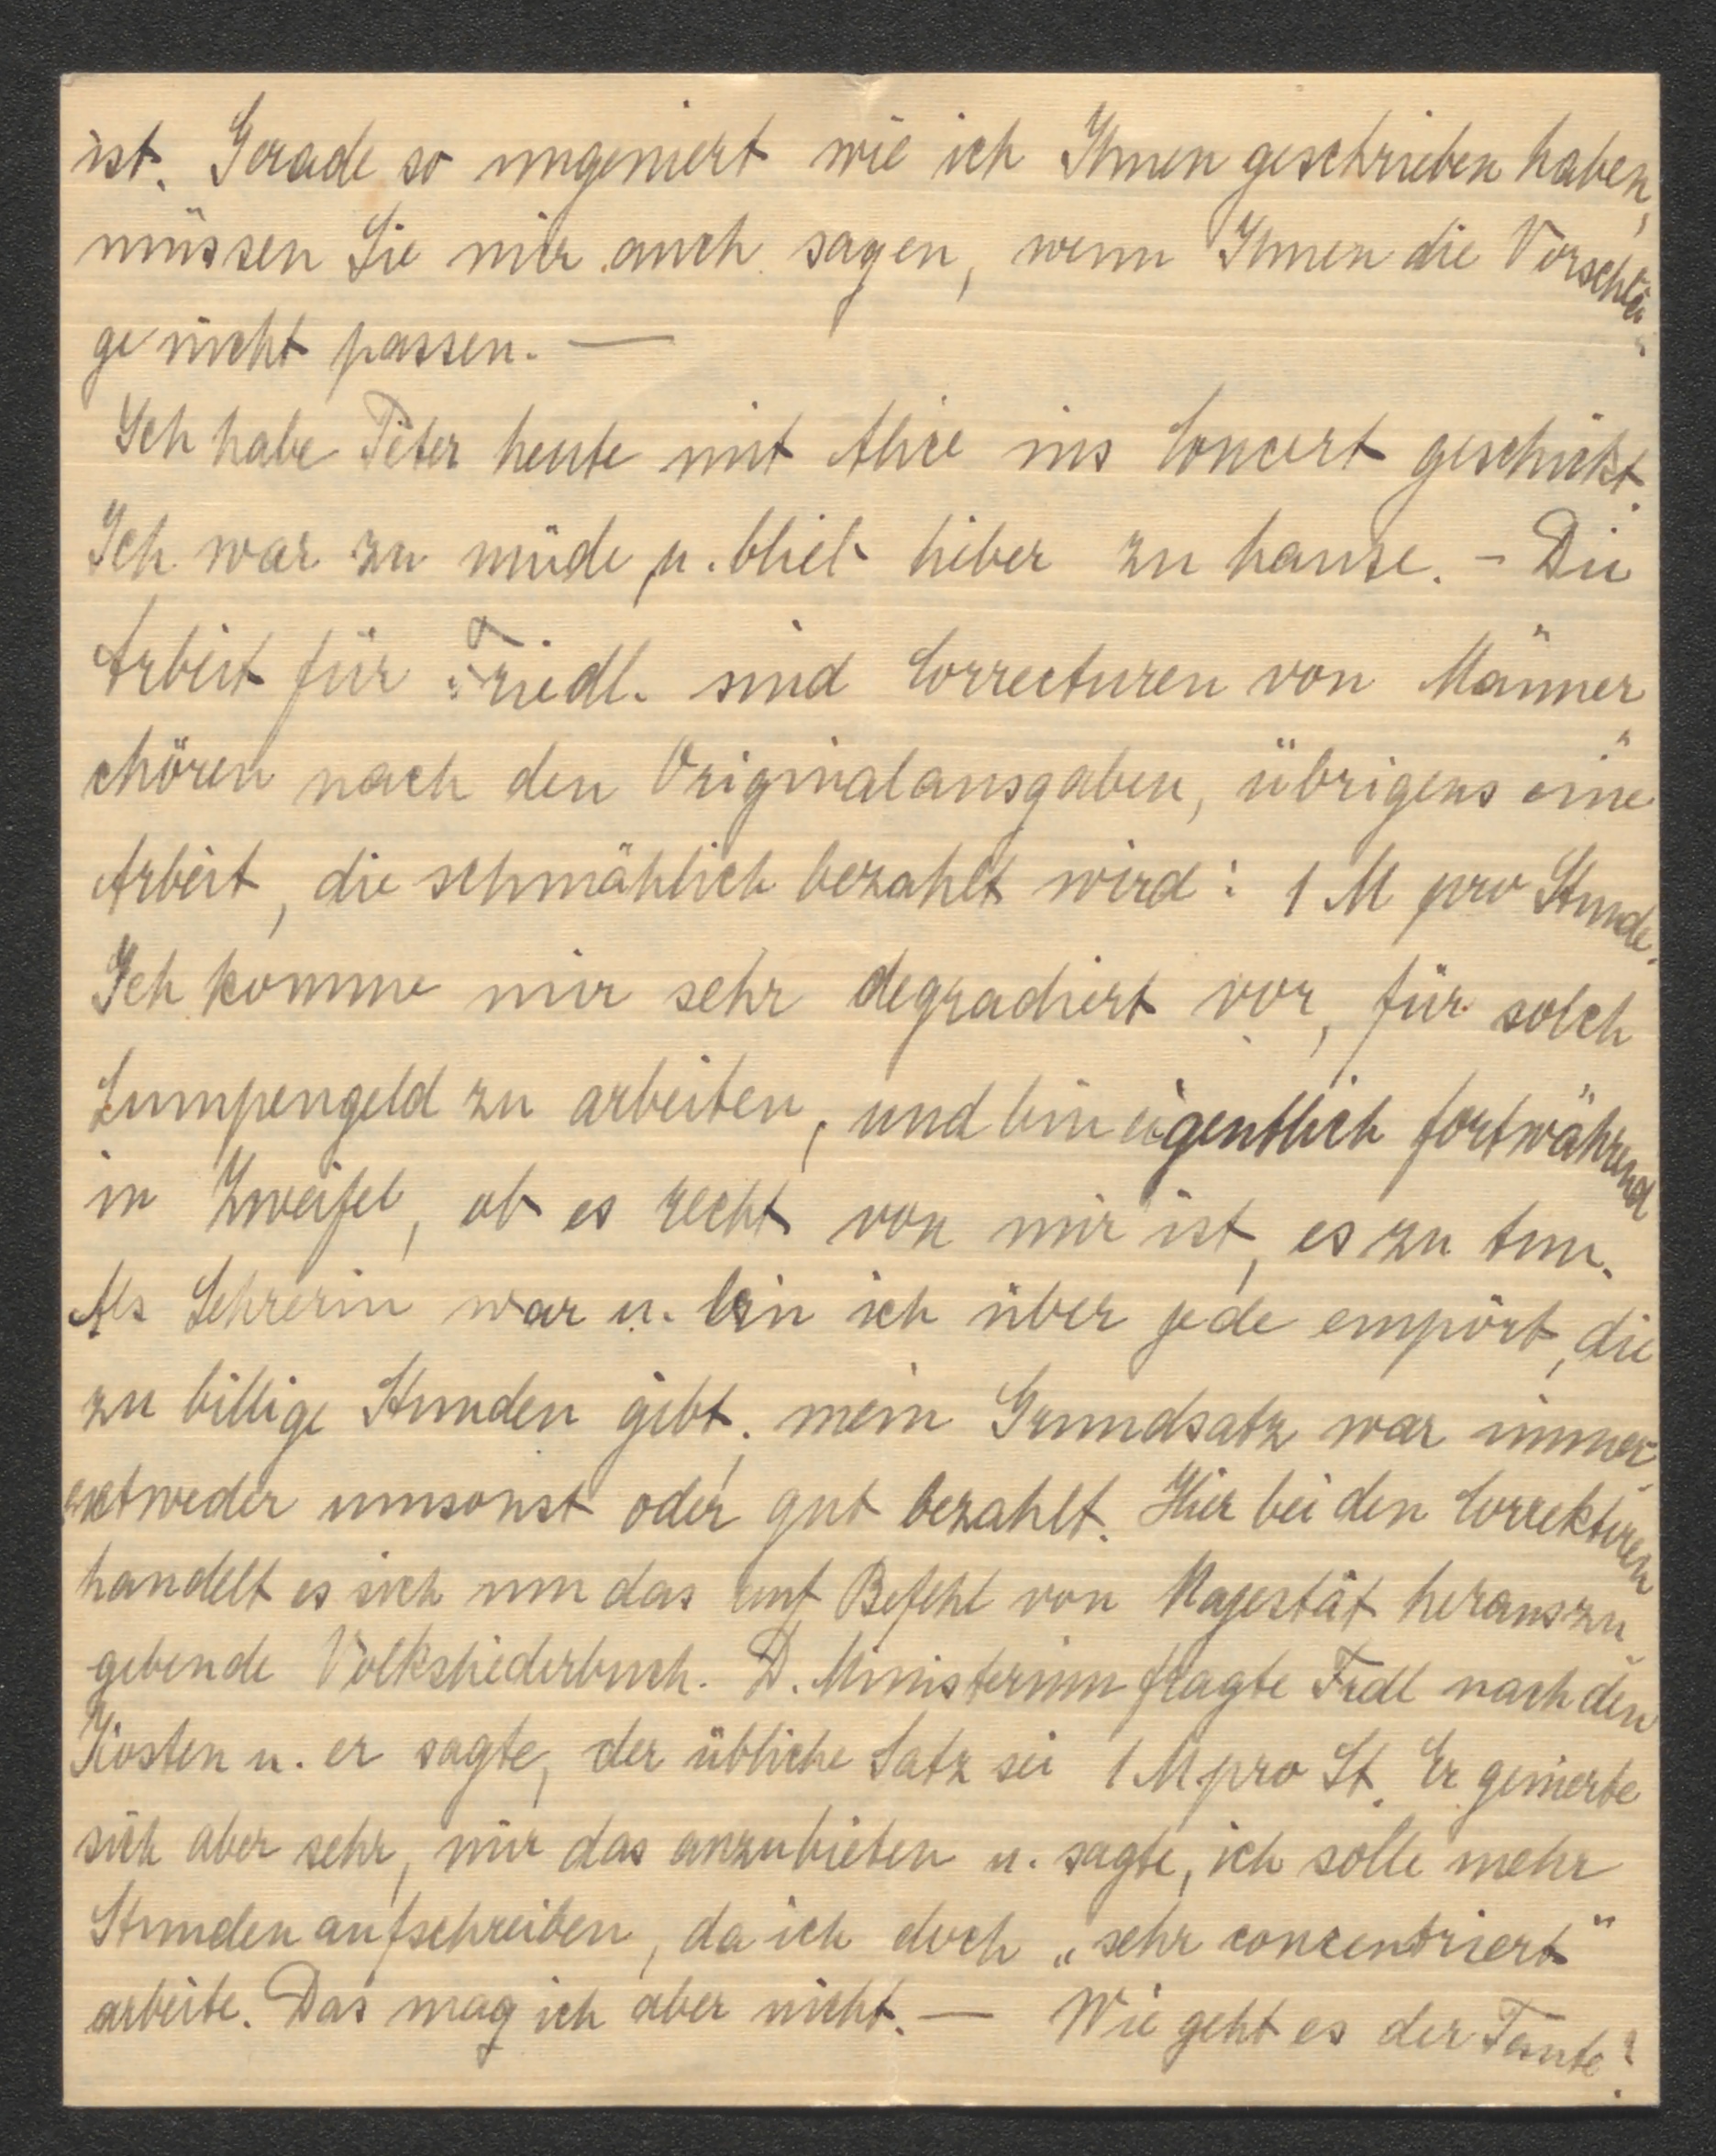 ist. Gerade so ungeniert wie ich Ihnen geschrieben habe,
müssen Sie mir auch sagen, wenn Ihnen die Vorschlä„
ge nicht passen. —
Ich habe Peter heute mit Alice ins Concert geschickt.
Ich war zu müde u. blieb lieber zu hause. - Die
Arbeit für Friedl. sind Correcturen von Männer„
chören nach den Originalausgaben, übrigens eine
Arbeit, die schmählich bezahlt wird: 1 M pro Stunde.
Ich komme mir sehr degradiert vor, für solch
Lumpengeld zu arbeiten, und bin eigentlich fortwährend
in Zweifel, ob es recht von mir ist, es zu tun.
Als Lehrerin war u. bin ich über jede empört, die
zu billige Stunden gibt; mein Grundsatz war immer:
entweder umsonst oder gut bezahlt. Hier bei den Correkturen
handelt es sich um das auf Befehl von Majestät herauszu„
gebende Volksliederbuch. D. Ministerium fragte Frdl nach den
Kosten u. er sagte, der übliche Satz sei 1 M pro St. Er genierte
sich aber sehr, mir das anzubieten u. sagte, ich solle mehr
Stunden aufschreiben, da ich doch „sehr concentriert"
arbeite. Das mag ich aber nicht. — Wie geht es der Tante?